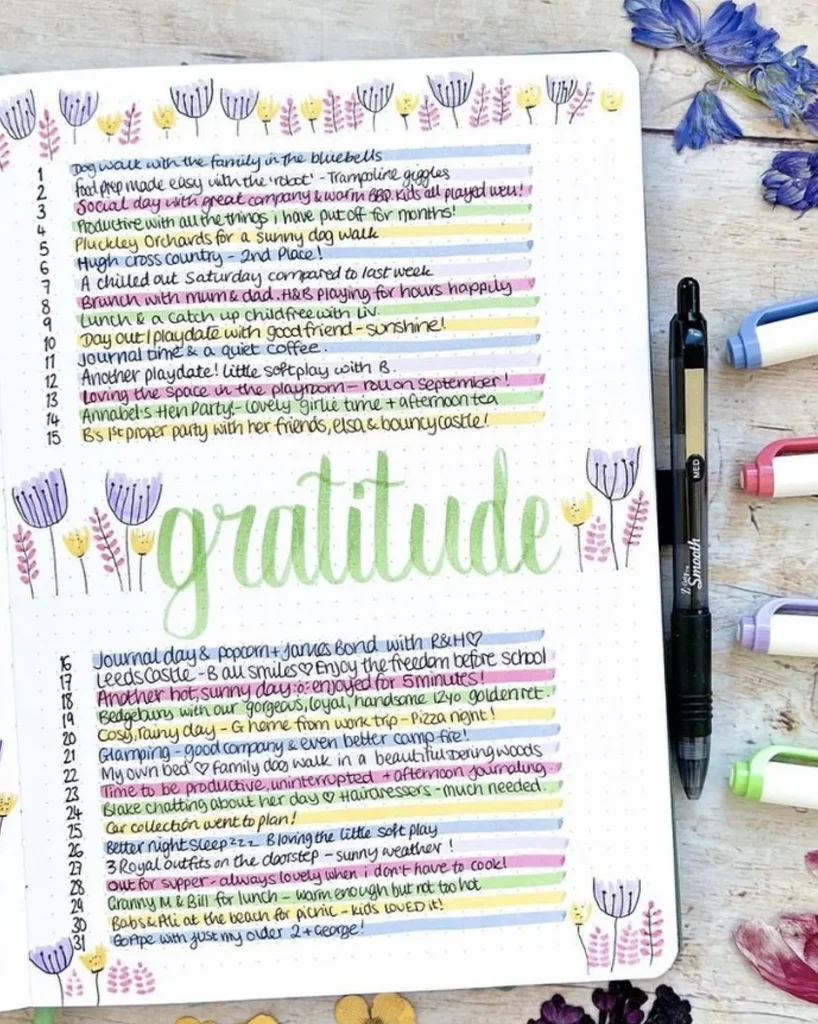 1 Dog walk with the family in the bluebells
2 food prep made easy with the 'robot' - Trampoline giggles
3 Social day with great company & warm BBQ. Kids all played well!
4 Productive with all the things i have put off for months!
5 Pluckley Orchards for a sunny dog walk
6 Hugh cross country - 2nd Place!
7 A chilled out Saturday compared to last week
8 Brunch with mum & dad. H&B playing for hours happily
9 Lunch & a catch up childfree with Liv.
10 Day out / playdate with good friend - sunshine!
11 Journal time & a quiet coffee.
12 Another playdate! little soft play with B.
13 Loving the space in the playroom - roll on September!
14 Annabel's Hen Party! - Lovely girlie time + afternoon tea
15 B's 1st proper party with her friends, elsa & bouncy castle!
gratitude
16 Journal day & popcorn + James Bond with R&H♡
17 Leeds Castle - B all smiles ♡ Enjoy the freedom before school
18 Another hot, sunny day :o: enjoyed for 5 minutes!
19 Bedgebury with our gorgeous, loyal, handsome 12yo golden ret.
20 Cosy, rainy day - G home from work trip - Pizza night!
21 Glamping - good company & even better camp fire!
22 My own bed ♡ Family dog walk in a beautiful Dering woods
23 Time to be productive, uninterrupted + afternoon journaling
24 Blake chatting about her day ♡ Hairdressers - much needed.
25 Car collection went to plan!
26 Better night sleep zzz B loving the little soft play
27 3 Royal outfits on the doorstep - sunny weather!
28 Out for supper - always lovely when i don't have to cook!
29 Granny M & Bill for lunch - warm enough but not too hot
30 Babs & Ali at the beach for picnic - kids LOVED it!
31 GoApe with just my older 2 + George!
MED
Smooth